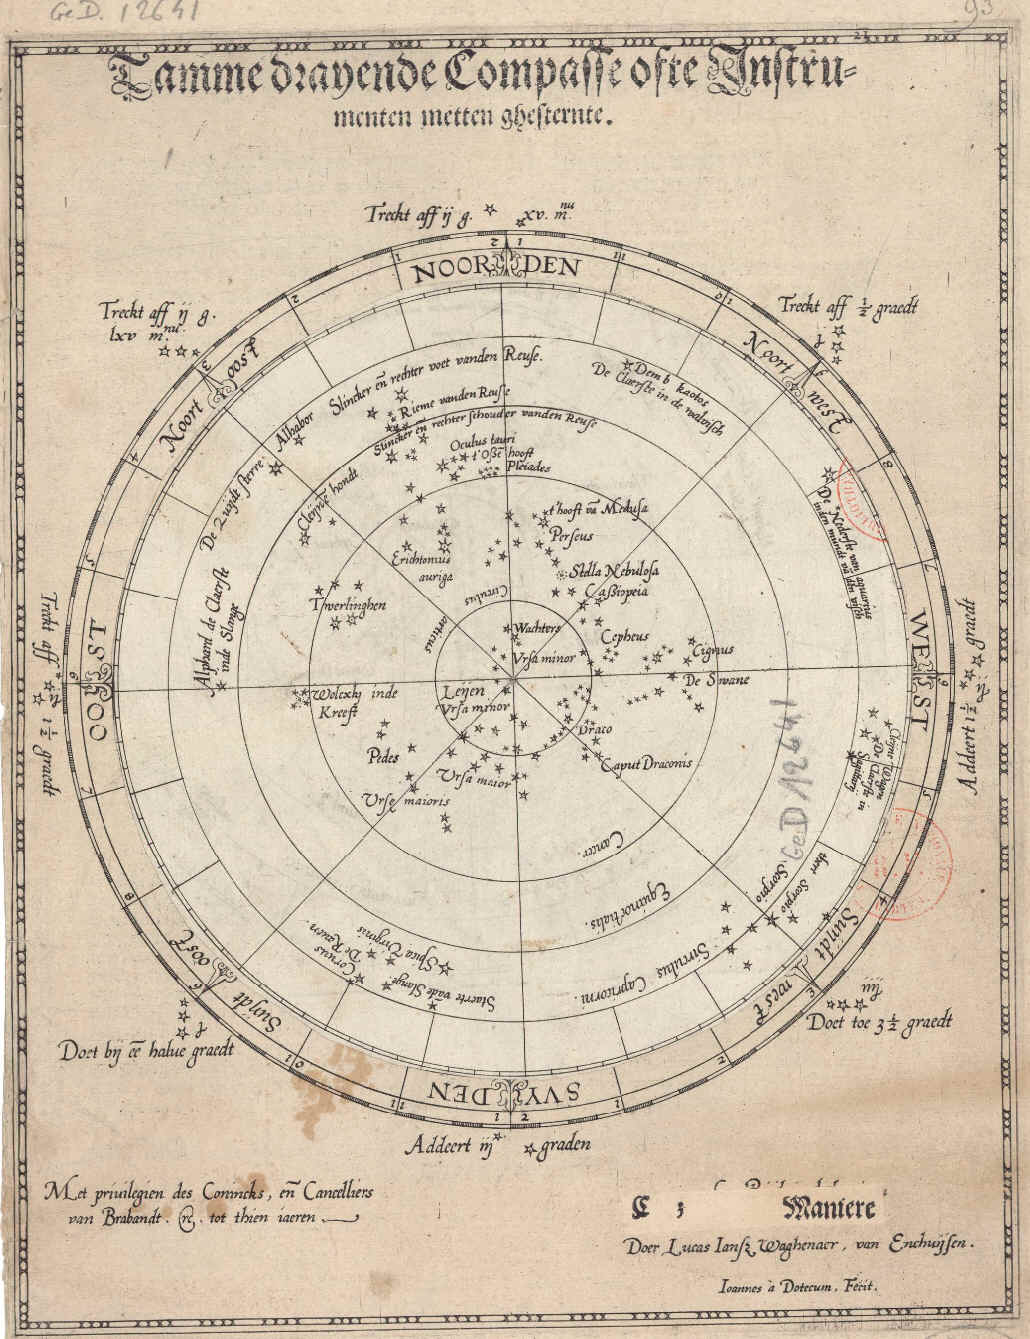 Ge D. 12641
93
21
Tamme drayende Compasse ofte Instru-
menten metten ghesternte.
Treckt aff ij g. xv. m.nu
Treckt aff ij g.
lxv m.nu
Treckt aff 1/2 graedt
NOORDEN
Noort oost
Noort west
OOST
WEST
Suydt oost
Suijdt west
SVYDEN
Slincker eñ rechter voet vanden Reuse.
Rieme vanden Reuse
Slincker en rechter schouder vanden Reuse
Demb kaotos
De Claerste in de walvisch
Alhabor
De Zuijdt sterre
Cleijne hondt
Oculus tauri
t'Osse hooft
Pleiades
t'hooft vã Medusa
Perseus
Stella Nebulosa
Cassiopeia
De Nederste van aquarius
inden mundt vã den visch
Erichtonius
auriga
Twerlinghen
Circulus
articus
Wachters
Vrsa minor
Cepheus
Cignus
De Swane
Alphard de Claerste
inde Slange
Wolcxkj inde
Kreeft
Leijen
Vrsa minor
Draco
Caput Draconis
Pedes
Vrse maioris
Vrsa maior
Cleijne Wagen
De Claerste in
Sagitary
Cancer.
Equinoctialis.
Sirculus Capricorni.
Scorpio
thert Scorpio
Spica Virginis
De Raven.
Corvus
Staerte vade Slange
Treckt aff 1 1/2 graedt
Addeert 1 1/2 graedt
Ge D 12641
Doet bij ee halue graedt
iiij
Doet toe 3 1/2 graedt
Addeert iij graden
Met priuilegien des Conincks, eñ Cancelliers
van Brabandt. &c. tot thien iaeren.
C 3 Maniere
Doer Lucas Iansz Waghenaer, van Enchuijsen.
Ioannes à Dotecum. Fecit.